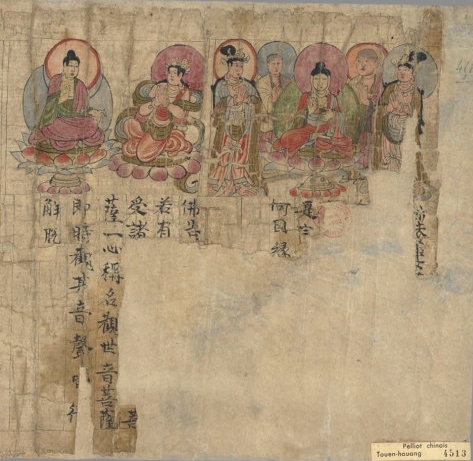 何因緣
佛告
若有
受諸
薩一心稱名觀世音菩薩
即時觀其音聲
解脫
Pelliot chinois
Touen-houang 4513